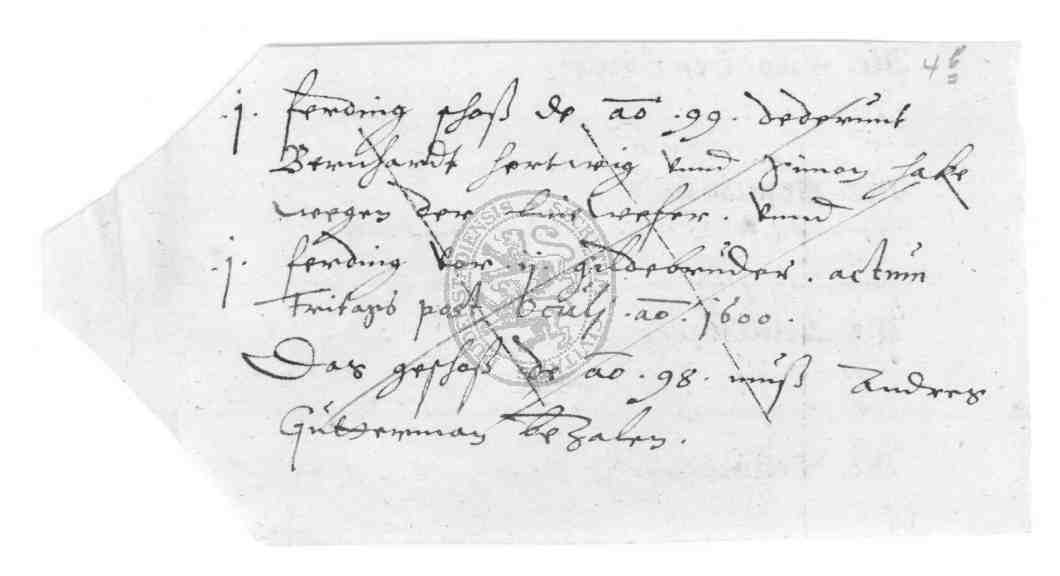 4
.j. ferding schoß de ao .99. dederunt
Bernhardt hertwig vnnd Simon hake
wegen der line weser. vnnd
.j. ferding vor .ij. gildebruder. actum
Fritags post Oculi .ao. 1600.
Das geschoß de ao .98. muß Andres
Gutterman bezalen.